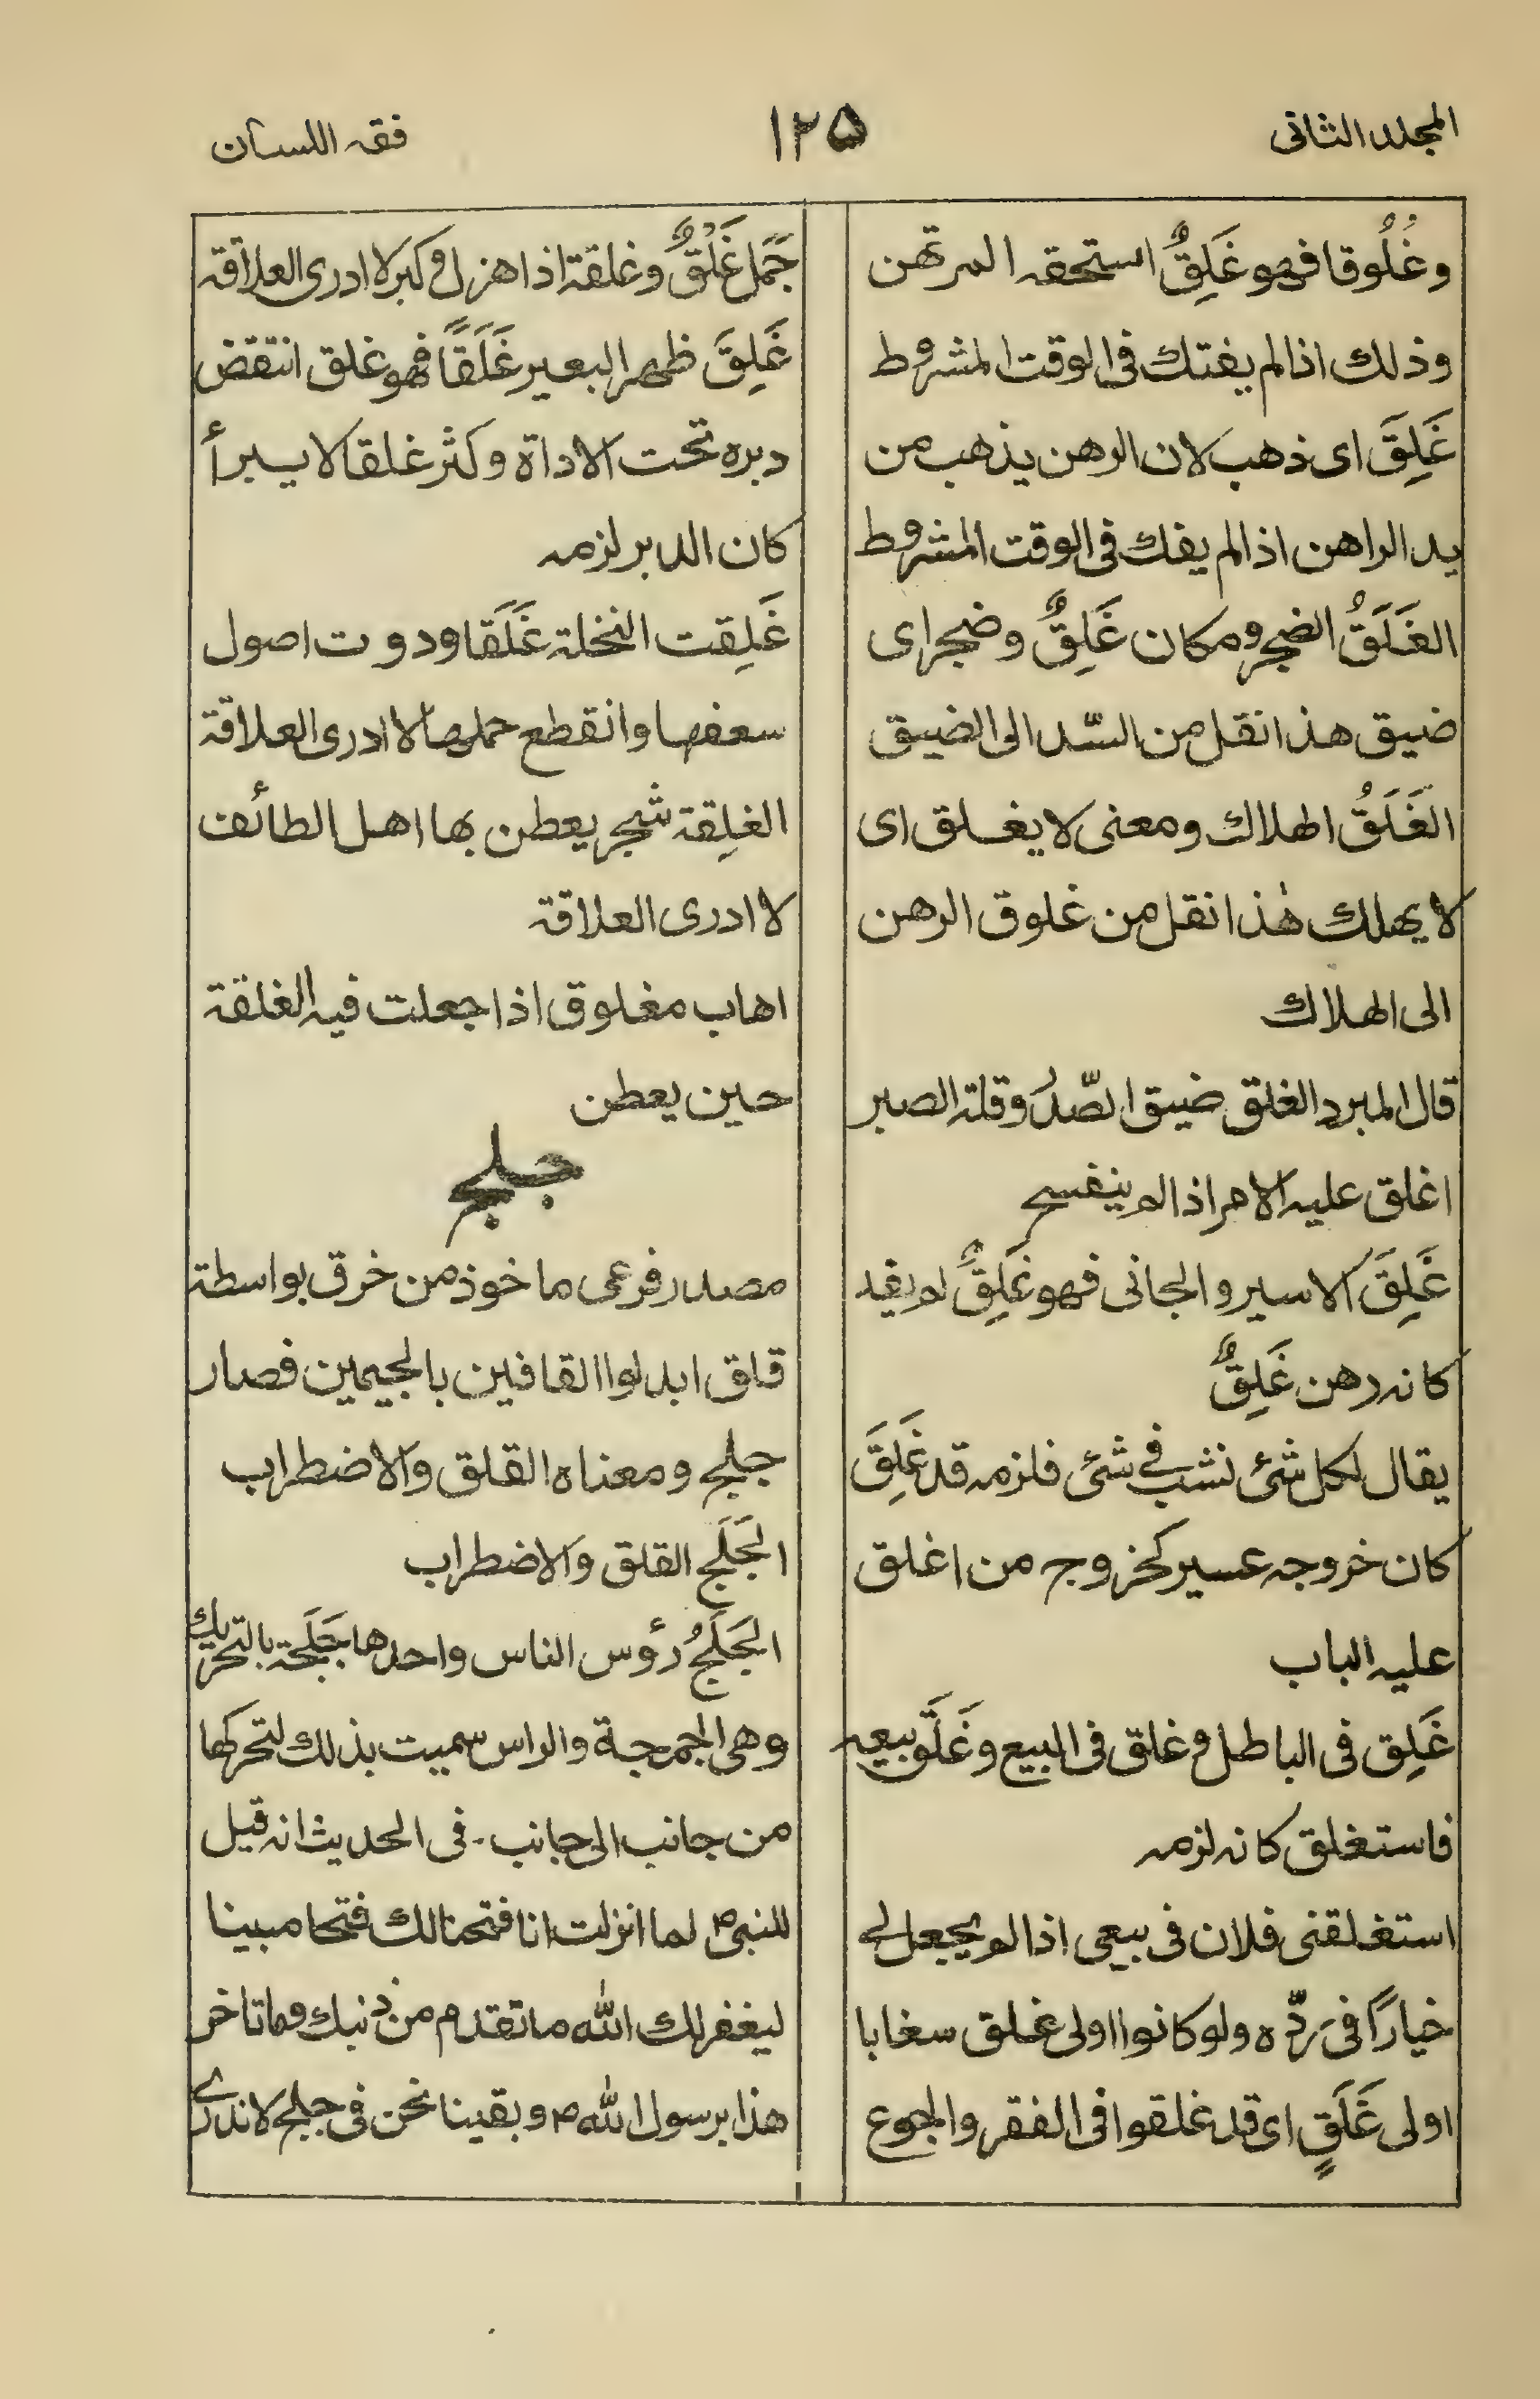 المجلد الثانى
۱۲۵
فقہ اللسان
وغُلُوقا فهو غَلِقٌ استحقہ المرتهن
وذلك اذا لم يفتك فى الوقت المشروط
غَلِقَ اى ذهب لان الرهن يذهب من
يد الراهن اذا لم يفك فى الوقت المشروط
الغَلَقُ الضجر ومكان غَلِقٌ وضجر اى
ضيق هذا نقل من السّد الى الضيق
الغَلَقُ الهلاك ومعنى لا يغلق اى
لا يهلك هٰذا نقل من غلوق الرهن
الى الهلاك
قال المبرد الغلق ضيق الصّدر وقلة الصبر
اغلق عليہ الامر اذا لم ينفسح
غَلِقَ الاسير والجانى فهو غَلِقٌ لم يفد
كانہ رهن غَلِقٌ
يقال لكل شئ نشب فے شئ فلزمہ قد غَلِقَ
كان خروجہ عسير كخروج من اغلق
عليہ الباب
غَلِق فى الباطل و غلق فى البيع و غَلَّق بيعہ
فاستغلق كانہ لزمہ
استغلقنى فلان فى بيعى اذا لم يجعل لے
خيارًا فى ردّه ولو كانوا اولى غلق سغابا
اولى غَلَقٍ اى قد غلقوا فى الفقر والجوع
جَمَل غَلْقٌ وغلقة اذا هزل و كبر لا ادرى العلاقہ
غَلِقَ ظهر البعير غَلَقًا فهو غلق انتقض
دبره تحت الاداة وكثر غلقا لا يبرأ
كان الدبر لزمہ
غَلِقت النخلة غَلَقا ودوت اصول
سعفها وانقطع حملها لا ادرى العلاقة
الغلِقة شجر يعطن بها اهل الطائف
لا ادرى العلاقة
اهاب مغلوق اذا جعلت فيہ الغلقة
حين يعطن
جلج
مصدر فرعى ماخوذ من خرق بواسطة
قلق ابدلوا القافين بالجيمين فصار
جلج ومعناه القلق والاضطراب
الجَلَج القلق والاضطراب
الجَلَجُ رؤس الناس واحدها جَلَجة بالتحريك
وهى الجمجمة والراس سميت بذلك لتحركها
من جانب الى جانب - فى الحديث انہ قيل
للنبىؐ لما انزلت انا فتحنا لك فتحا مبينا
ليغفر لك الله ما تقدم من ذنبك وما تاخر
هذا برسول اللهؐ وبقينا نحن فى جلج لا ندرے